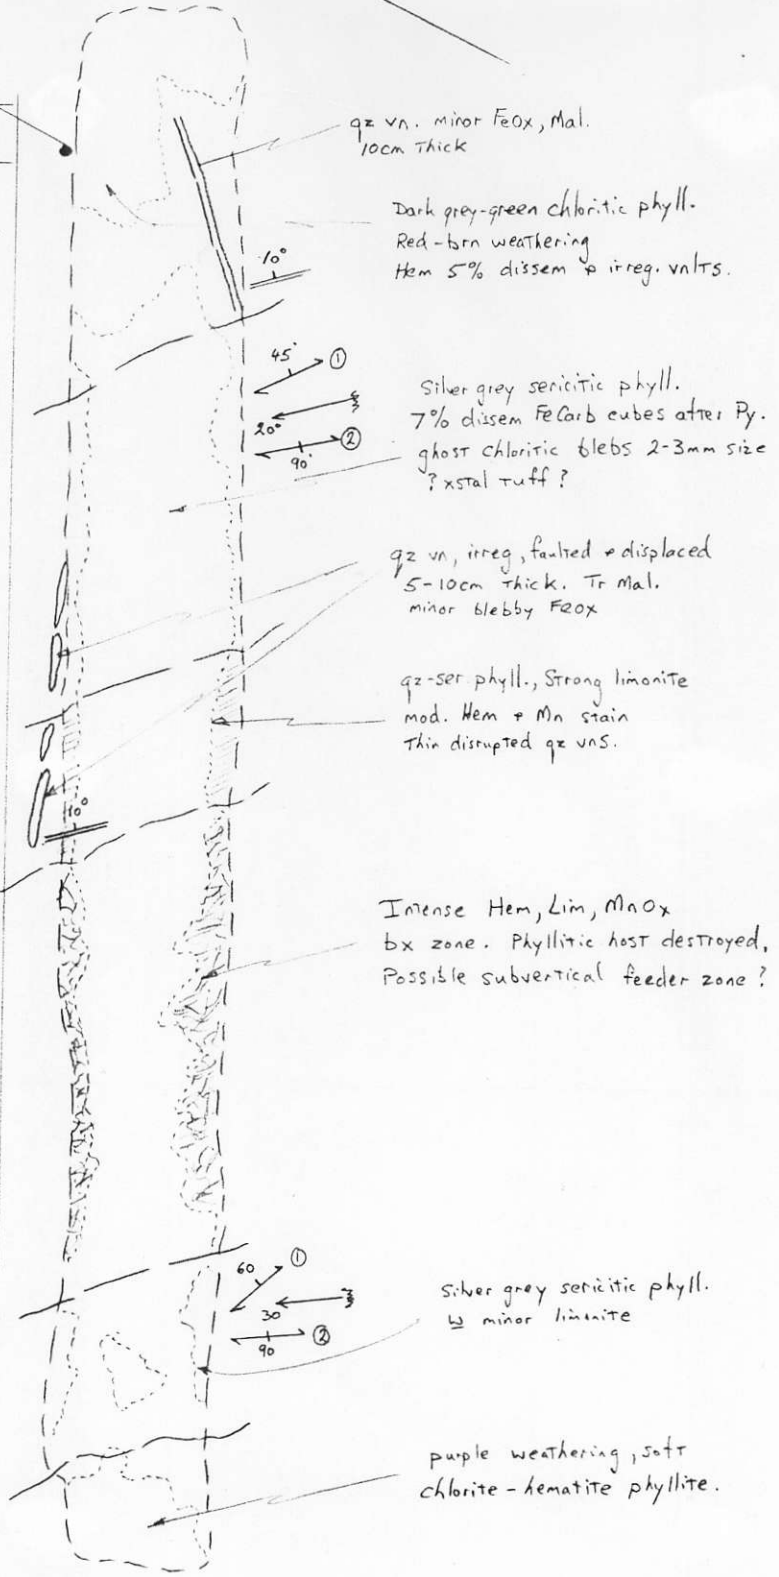 qz vn. minor FeOx, Mal.
10cm Thick
Dark grey-green chloritic phyll.
Red-brn weathering
Hem 5% dissem & irreg. vnlTs.
10°
45°
①
20°
②
90°
Silver grey sericitic phyll.
7% dissem FeCarb cubes after Py.
ghost chloritic blebs 2-3mm size
? xstal Tuff ?
qz vn, irreg, faulted & displaced
5-10cm Thick. Tr Mal.
minor blebby FeOx
qz-ser phyll., Strong limonite
mod. Hem & Mn stain
Thin disrupted qz vns.
10°
Intense Hem, Lim, MnOx
bx zone. Phyllitic host destroyed,
Possible subvertical feeder zone ?
60
①
30
②
90
Silver grey sericitic phyll.
w minor limonite
purple weathering, soft
chlorite - hematite phyllite.